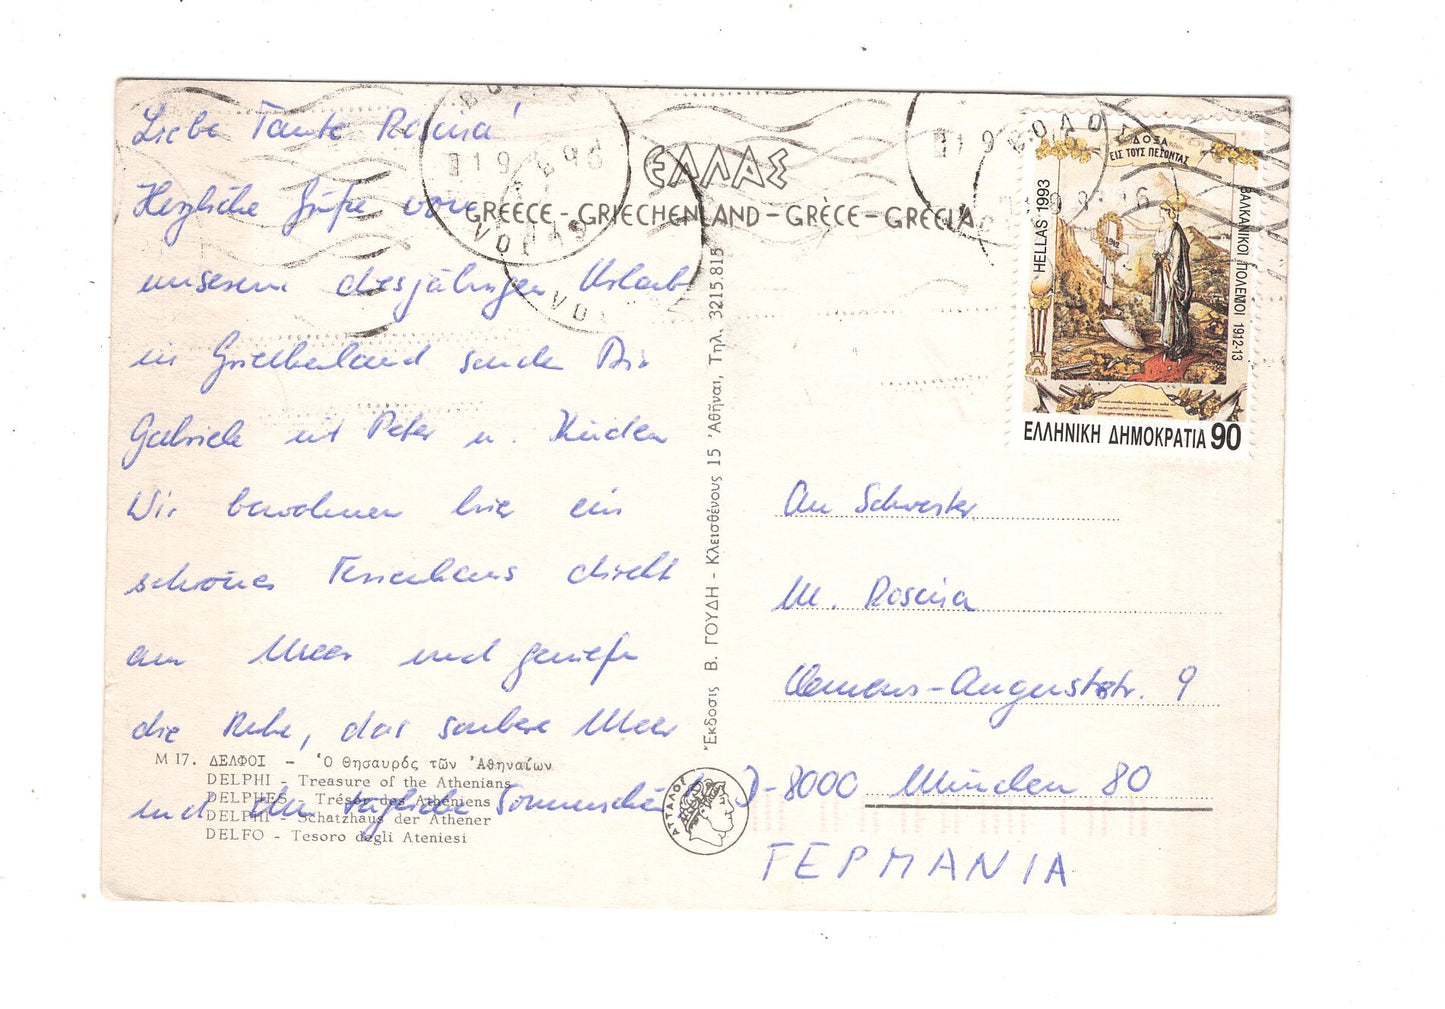 Liebe Tante Rosina!
Herzliche Grüße von
unserem diesjährigen Urlaub
in Griechenland senden Dir
Gabriele mit Peter u. Kinder
Wir bewohnen hier ein
schönes Ferienhaus direkt
am Meer und genießen
die Ruhe, das saubere Meer
und den täglichen Sonnenschein
M 17. ΔΕΛΦΟΙ - Ὁ Θησαυρός τῶν Ἀθηναίων
DELPHI - Treasure of the Athenians
DELPHES - Trésor des Athéniens
DELPHI - Schatzhaus der Athener
DELFO - Tesoro degli Ateniesi
ΕΛΛΑΣ
GREECE - GRIECHENLAND - GRÈCE - GRECIA
Ἔκδοσις Β. ΓΟΥΔΗ - Κλεισθένους 15 Ἀθῆναι, Τηλ. 3215.815
ΑΤΤΑΛΟΣ
ΒΟΛΟΣ
VOLOS
ΔΟΞΑ
ΕΙΣ ΤΟΥΣ ΠΕΣΟΝΤΑΣ
HELLAS 1993
ΒΑΛΚΑΝΙΚΟΙ ΠΟΛΕΜΟΙ 1912-13
ΕΛΛΗΝΙΚΗ ΔΗΜΟΚΡΑΤΙΑ 90
An Schwester
M. Rosina
Clemens-Auguststr. 9
D-8000 München 80
ΓΕΡΜΑΝΙΑ